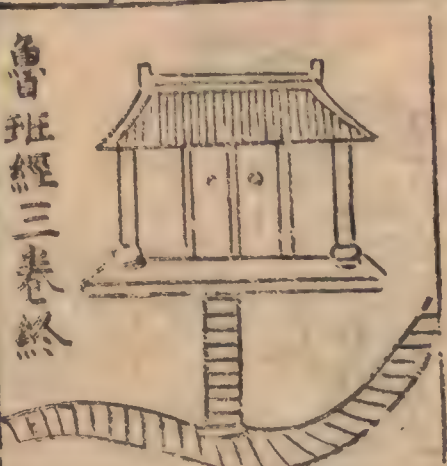 魯班經三卷終